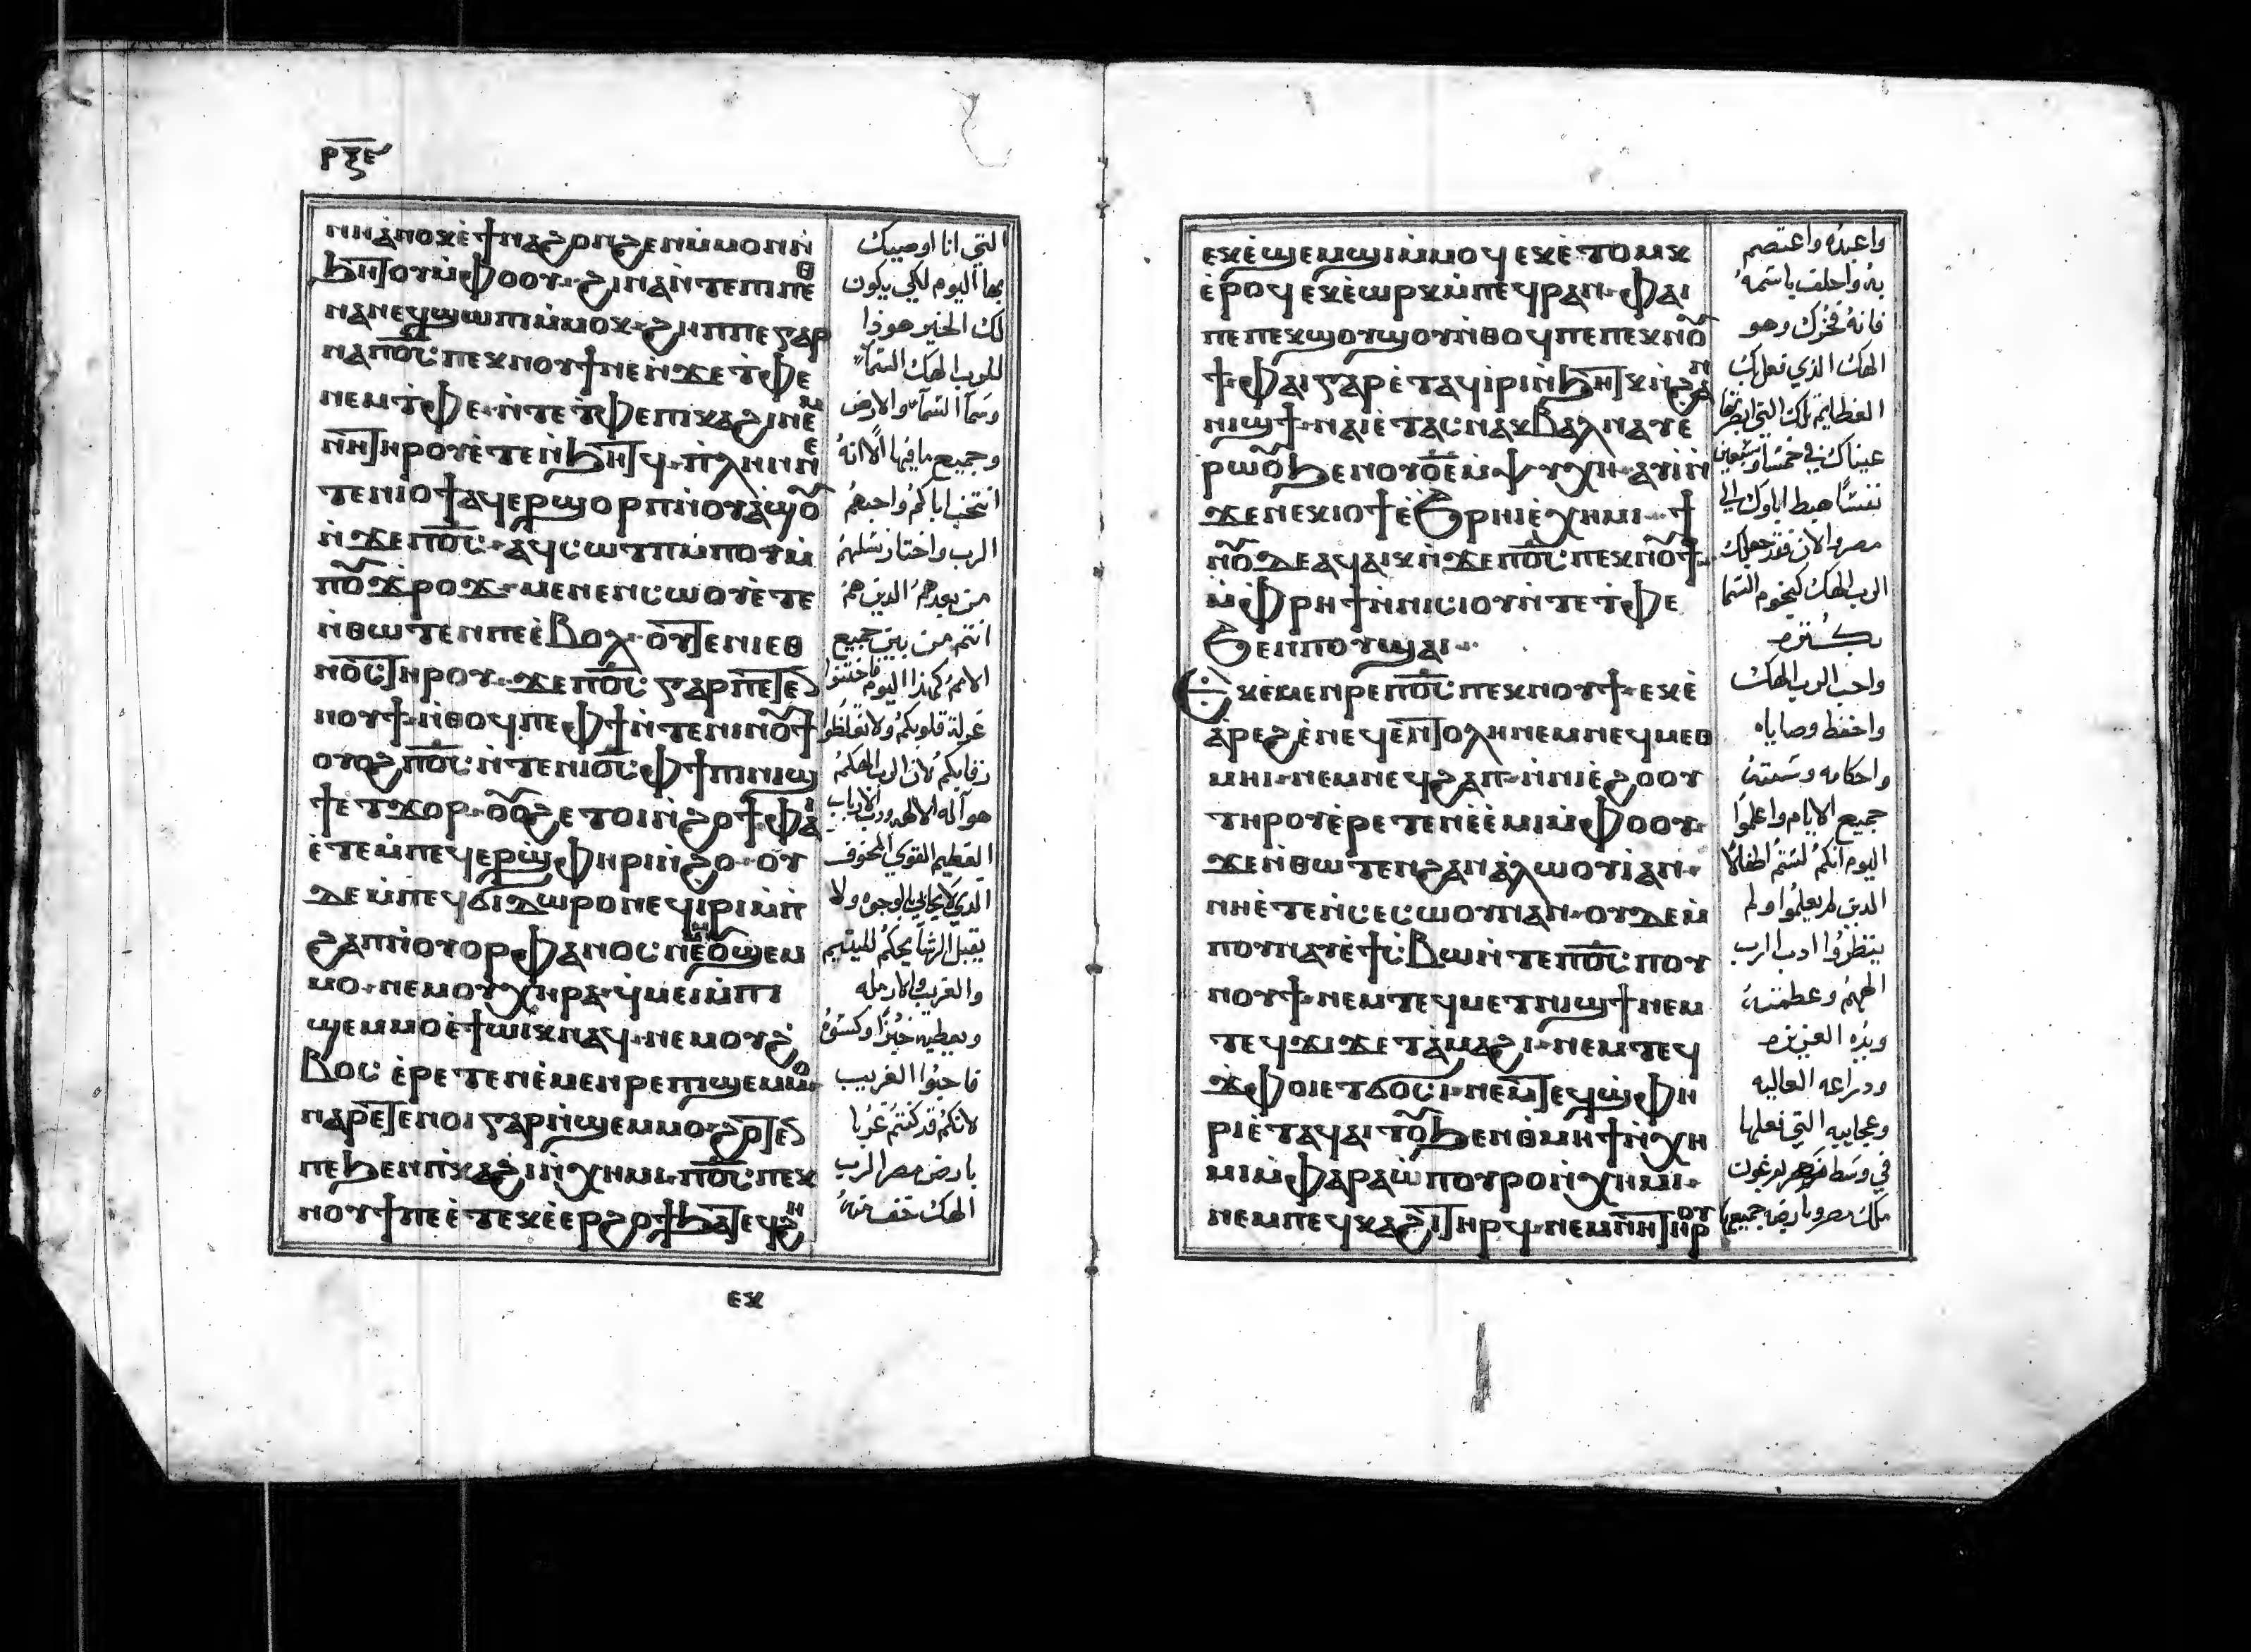 ⲣⲝⲉ
ⲛⲏⲁ̀ⲛⲟⲕⲉ̀ϯⲛⲁϩⲟⲛϩⲉⲛⲙ̀ⲙⲟⲛⲛ̀
ϧⲏⲧⲟⲩⲙ̀ⲫⲟⲟⲩ· ϩⲓⲛⲁⲛ̀ⲧⲉⲡⲓⲡⲉⲑ
ⲛⲁⲛⲉϥϣⲱⲡⲓⲙ̀ⲙⲟⲕ· ϩⲏⲡⲡⲉⲅⲁⲣ
ⲛⲁⲡⲟ̅ⲥ̅ ⲡⲉⲕⲛⲟⲩϯⲛⲉⲛ̀ϫⲉⲧ̀ⲫⲉ
ⲛⲉⲙⲧ̀ⲫⲉ· ⲛ̀ⲧⲉⲧ̀ⲫⲉⲡⲓⲕⲁϩⲓⲛⲉⲙ
ⲛⲏⲧⲏⲣⲟⲩⲉ̀ⲧⲉⲛ̀ϧⲏⲧϥ· ⲡ̀ⲗⲏⲛⲛⲉ
ⲧⲉⲛⲓⲟϯⲁϥⲉⲣϣⲟⲣⲡⲛ̀ⲟⲩⲁ̀ϣⲟ̅
ⲛ̀ϫⲉⲡⲟ̅ⲥ̅· ⲁϥⲥⲱⲧⲡⲙ̀ⲡⲟⲩⲙ̀
ⲡⲟ̅ϫⲣⲟϫ· ⲙⲉⲛⲉⲛⲥⲱⲟⲩⲉ̀ⲧⲉ
ⲛ̀ⲑⲱⲧⲉⲛⲡⲉⲉ̀ⲃⲟⲗ· ⲟⲩⲧⲉⲛⲓⲉⲑ
ⲛⲟⲥⲧⲏⲣⲟⲩ· ϫⲉⲡⲟ̅ⲥ̅ ⲅⲁⲣⲡⲉⲧⲉ
ⲛⲟⲩϯ· ⲛ̀ⲑⲟϥⲡⲉⲫϯⲛ̀ⲧⲉⲛⲓⲛⲟ̅ϯ
ⲟⲩⲟϩⲡⲟ̅ⲥ̅ ⲛ̀ⲧⲉⲛⲓⲟ̅ⲥ̅ ⲫϯⲡⲓⲛⲓϣ
ϯⲉⲧϫⲟⲣ· ⲟ̅ⲟϩⲉⲧⲟⲓⲛ̀ϩⲟϯⲫⲁⲓ
ⲉ̀ⲧⲉⲙ̀ⲡⲉϥⲉⲣϣ̀ⲫⲏⲣⲓⲛ̀ϩⲟ· ⲟⲩ
ⲇⲉⲙ̀ⲡⲉϥϭⲓⲇⲱⲣⲟⲛⲉϥⲓ̀ⲣⲓⲙ̀ⲡ
ϩⲁⲡⲛ̀ⲟⲩⲟⲣⲫⲁⲛⲟⲥ ⲛⲉⲙⲟ̅ϣⲉⲙ
ⲙⲟ· ⲛⲉⲙⲟⲩⲭⲏⲣⲁ· ϥⲙⲉⲓⲙ̀ⲡⲓ
ϣⲉⲙⲙⲟⲉ̀ϯⲱⲓⲕⲛⲁϥ· ⲛⲉⲙⲟⲩϩ
ⲃⲟⲥ ⲉ̀ⲣⲉⲧⲉⲛⲉ̀ⲙⲉⲛⲣⲉⲡⲓϣⲉⲙⲙⲟ
ⲛⲁⲣⲉⲧⲉⲛⲟⲓⲅⲁⲣⲛ̀ϣⲉⲙⲙⲟ· ϩⲱⲧⲉ
ⲡⲉϧⲉⲛⲡ̀ⲕⲁϩⲓⲛ̀ⲭⲏⲙⲓ· ⲡⲟ̅ⲥ̅ ⲡⲉⲕ
ⲛⲟⲩϯⲡⲉⲉ̀ⲧⲉⲕⲉ̀ⲉⲣϩⲟϯϧⲁⲧⲉϥϩⲏ
ⲉⲕ
التي انا اوصيك
بها اليوم لكي يكون
لك الخير هوذا
للرب الهك السماء
وسما السماء والارض
وجميع ما فيها الا انه
انتخب اباكم واحبهم
الرب واختار نسلهم
من بعدهم الذين هم
انتم من بين جميع
الامم كهذا اليوم فاختنوا
غرلة قلوبكم ولا تغلظوا
رقابكم لان الرب الهكم
هو اله الالهه ورب الارباب
العظيم القوي المخوف
الذي لا يحابي بالوجوه ولا
يقبل الرشا يحكم لليتيم
والغريب والارمله
ويعطيه خبزا وكسوه
فاحبوا الغريب
لانكم قد كنتم غربا
بارض مصر الرب
الهك تخف منه
ⲉⲕⲉ̀ϣⲉⲙϣⲓⲙ̀ⲙⲟϥ ⲉⲕⲉ̀ⲧⲟⲙⲕ
ⲉ̀ⲣⲟϥ ⲉⲕⲉ̀ⲱⲣⲕⲙ̀ⲡⲉϥⲣⲁⲛ· ⲫⲁⲓ
ⲡⲉⲡⲉⲕϣⲟⲩϣⲟⲩⲛ̀ⲑⲟϥⲡⲉⲡⲉⲕⲛⲟ̅
ϯ· ⲫⲁⲓⲅⲁⲣⲉ̀ⲧⲁϥⲓ̀ⲣⲓⲛ̀ϧⲏⲧⲕⲛ̀ϩⲁⲛ
ⲛⲓϣϯ· ⲛⲁⲓⲉ̀ⲧⲁⲥⲛⲁⲩⲃⲁⲗⲛⲁⲩⲉ
ⲣⲱⲟ̅ϧⲉⲛⲟⲩⲟ̅ⲉ̅ⲙ̀ⲯⲩⲭⲏ· ⲁⲩⲓ̀ⲛ̀
ϫⲉⲛⲉⲕⲓⲟϯⲉ̀ϧⲣⲏⲓⲉ̀ⲭⲏⲙⲓ· ϯ
ⲛⲟ̅ⲇⲉⲁϥⲁⲓⲕⲛ̀ϫⲉⲡⲟ̅ⲥ̅ ⲡⲉⲕⲛⲟ̅ϯ·
ⲙ̀ⲫⲣⲏϯⲛ̀ⲛⲓⲥⲓⲟⲩⲛ̀ⲧⲉⲧ̀ⲫⲉ
ϧⲉⲛⲡⲟⲩⲁ̀ϣⲁⲓ·
ⲉⲕⲉ̀ⲙⲉⲛⲣⲉⲡⲟ̅ⲥ̅ ⲡⲉⲕⲛⲟⲩϯ· ⲉⲕⲉ̀
ⲁ̀ⲣⲉϩⲉ̀ⲛⲉϥⲉⲛⲧⲟⲗⲏⲛⲉⲙⲛⲉϥⲙⲉⲑ
ⲙⲏⲓ· ⲛⲉⲙⲛⲉϥϩⲁⲡ· ⲛ̀ⲛⲓⲉ̀ϩⲟⲟⲩ
ⲧⲏⲣⲟⲩⲉ̀ⲣⲉⲧⲉⲛⲉ̀ⲉ̀ⲙⲓⲙ̀ⲫⲟⲟⲩ·
ϫⲉⲛ̀ⲑⲱⲧⲉⲛϩⲁⲛⲁ̀ⲗⲱⲟⲩⲓ̀ⲁⲛ·
ⲛⲏⲉ̀ⲧⲉⲛ̀ⲥⲉⲥⲱⲟⲩⲛⲁⲛ· ⲟⲩⲇⲉⲙ̀
ⲡⲟⲩⲛⲁⲩⲉ̀ϯⲥ̀ⲃⲱⲛ̀ⲧⲉⲡⲟ̅ⲥ̅ ⲡⲟⲩ
ⲛⲟⲩϯ· ⲛⲉⲙⲧⲉϥⲙⲉⲧⲛⲓϣϯⲛⲉⲙ
ⲧⲉϥϫⲓϫⲉⲧⲁ̀ⲙⲁϩⲓ· ⲛⲉⲙⲧⲉϥ
ϫ̀ⲫⲟⲓⲉⲧϭⲟⲥⲓ· ⲛⲉⲙⲧⲉϥϣ̀ⲫⲏ
ⲣⲓⲉ̀ⲧⲁϥⲁⲓⲧⲟ̅ϧⲉⲛⲑ̀ⲙⲏϯⲛ̀ⲭⲏ
ⲙⲓⲙ̀ⲫⲁⲣⲁⲱ̀ⲡⲟⲩⲣⲟⲛ̀ⲭⲏⲙⲓ·
ⲛⲉⲙⲡⲉϥⲕⲁϩⲓⲧⲏⲣϥ· ⲛⲉⲙⲛⲏⲧⲏⲣⲟⲩ
واعبده واعتصم
به واحلف باسمه
فانه فخرك وهو
الهك الذي فعل بك
العظايم تلك التي ابصرتها
عيناك في خمسا وسبعين
نفسا هبط اباوك الي
مصر والان فقد جعلك
الرب الهك كنجوم السما
بكثره
واحب الرب الهك
واحفظ وصاياه
واحكامه وسننه
جميع الايام واعلموا
اليوم انكم لستم اطفالا
الذين لم يعلموا ولم
ينظروا ادب الرب
الههم وعظمته
ويده العزيزه
ودراعه العاليه
وعجايبه التي فعلها
في وسط مصر لفرعون
ملك مصر وبارضه جميعها